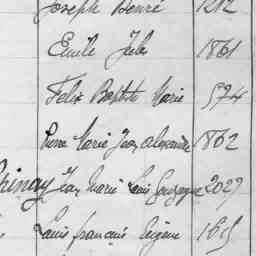 Joseph Henri 1212
Emile Jules 1861
Felix Baptiste Marie 574
Pierre Marie Jean Alexandre 1862
Jean Marie Louis Gonzague 2029
Louis françois Eugène